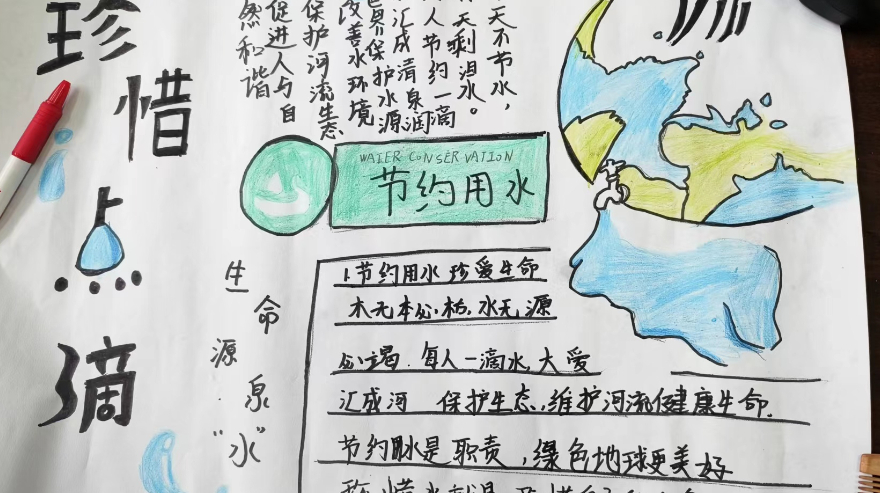 珍惜点滴
天不节水，
天剩泪水。
人节约一滴
汇成清泉
保护水源
改善水环境
保护河流生态
促进人与自
然和谐
WATER CONSERVATION
节约用水
生命
源泉
"水"
1.节约用水 珍爱生命
木无本必枯，水无源
必竭.每人一滴水，大爱
汇成河 保护生态，维护河流健康生命.
节约用水是职责，绿色地球更美好